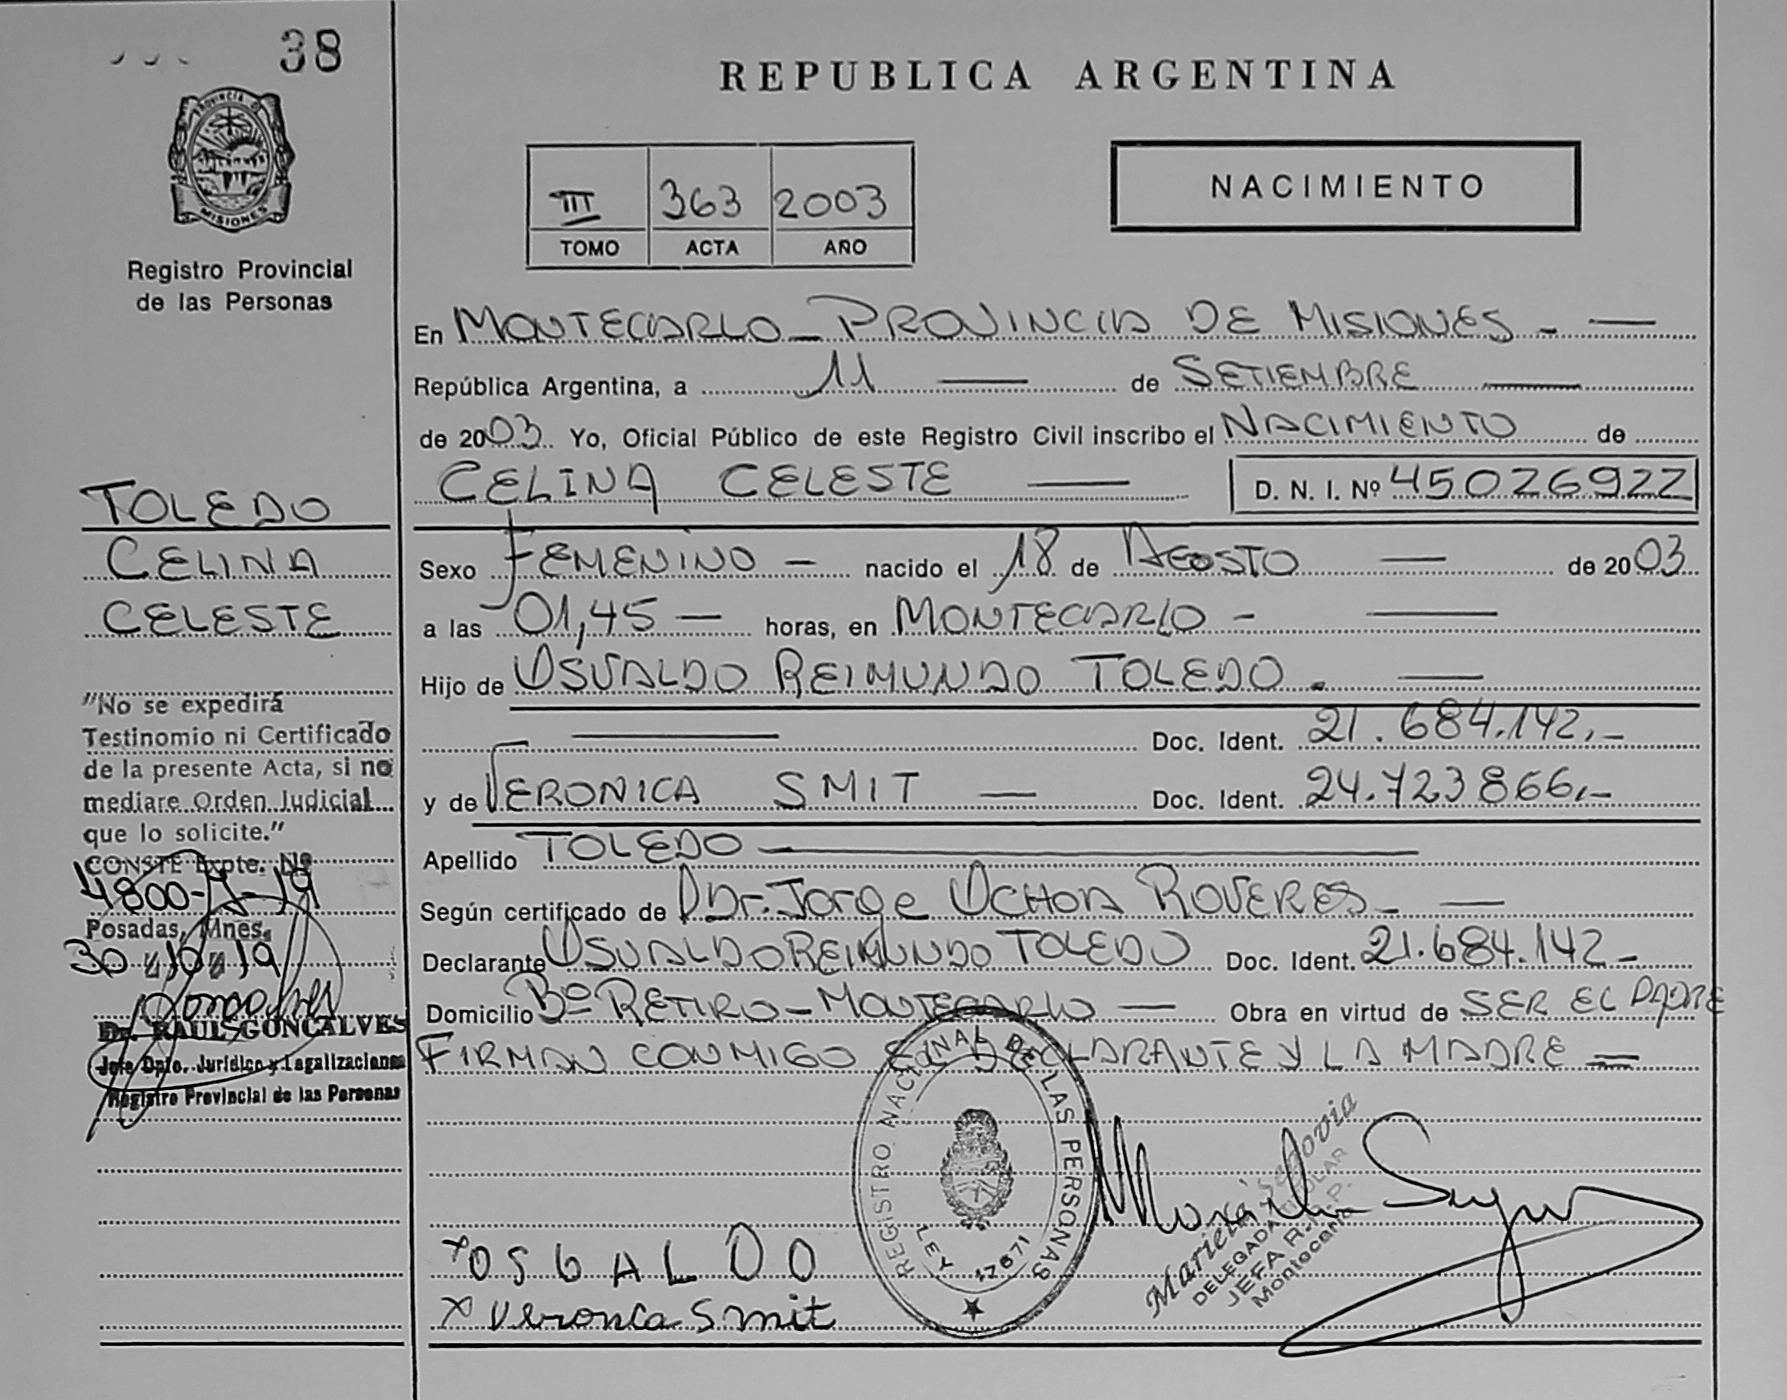 38
PROVINCIA D
MISIONES
Registro Provincial
de las Personas
TOLEDO
CELINA
CELESTE
"No se expedirá
Testinomio ni Certificado
de la presente Acta, si no
mediare Orden Judicial
que lo solicite."
CONSTE Expte. Nº
4800-A-19
Posadas, Mnes.
30 10 19
Dr. RAUL GONCALVES
Jefe Dpto. Jurídico y Legalizaciones
Registro Provincial de las Personas
REPUBLICA ARGENTINA
III 363 2003
TOMO ACTA AÑO
NACIMIENTO
En MONTECARLO - PROVINCIA DE MISIONES - —
República Argentina, a 11 — de SETIEMBRE —
de 2003 Yo, Oficial Público de este Registro Civil inscribo el NACIMIENTO de
CELINA CELESTE — D. N. I. Nº 45026922
Sexo FEMENINO — nacido el 18 de AGOSTO — de 2003
a las 01,45 — horas, en MONTECARLO - —
Hijo de OSVALDO REIMUNDO TOLEDO . —
— Doc. Ident. 21.684.142,-
y de VERONICA SMIT — Doc. Ident. 24.723866,-
Apellido TOLEDO —
Según certificado de Dr. Jorge OCHOA ROVERES - —
Declarante OSVALDO REIMUNDO TOLEDO Doc. Ident. 21.684.142 -
Domicilio Bº RETIRO - MONTECARLO — Obra en virtud de SER EL PADRE
FIRMAN CONMIGO EL DECLARANTE Y LA MADRE =
REGISTRO NACIONAL DE LAS PERSONAS
LEY 17671
Mariela Segovia
DELEGADA TITULAR
JEFA R.P.
Montecarlo
x OSBALDO
x Veronca Smit